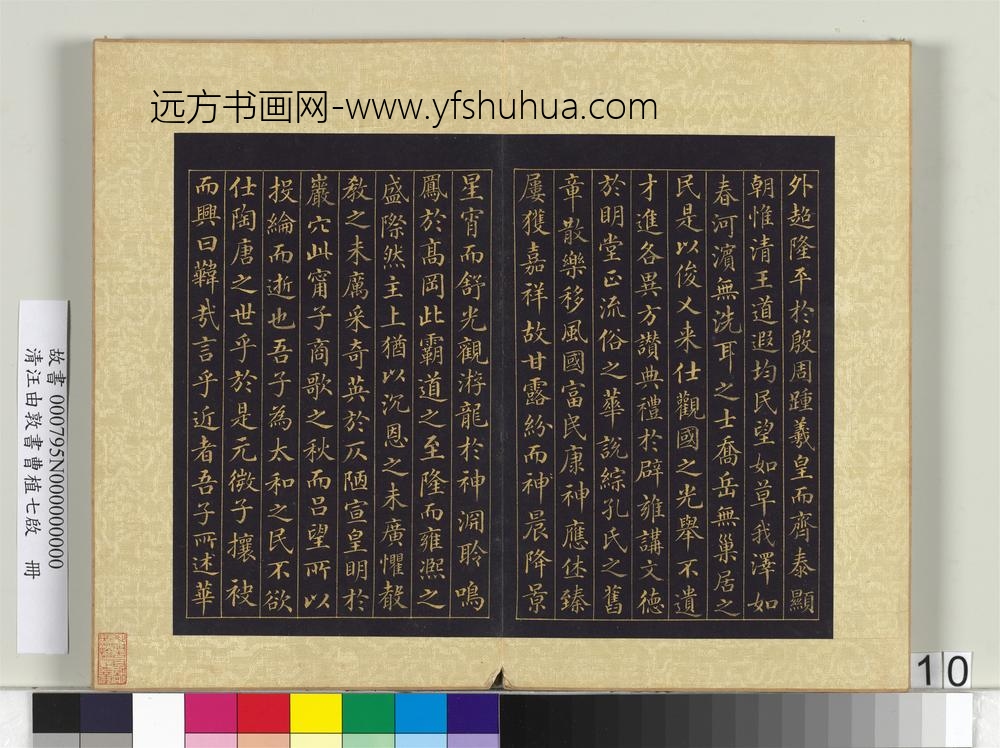 远方书画网-www.yfshuhua.com
外超隆平於殷周踵羲皇而齊泰顯
朝惟清王道遐均民望如草我澤如
春河濱無洗耳之士喬岳無巢居之
民是以俊乂来仕觀國之光舉不遺
才進各異方讃典禮於辟雍講文德
於明堂正流俗之華說綜孔氏之舊
章散樂移風國富民康神應休臻
屢獲嘉祥故甘露紛而神晨降景
星宵而舒光觀游龍於神淵聆鳴
鳳於髙岡此霸道之至隆而雍熙之
盛際然主上猶以沉恩之未廣懼聲
教之未厲采奇英於仄陋宣皇明於
巖穴此甯子商歌之秋而吕望所以
投綸而逝也吾子為太和之民不欲
仕陶唐之世乎於是元微子攘袂
而興曰韡㢤言乎近者吾子所述華
故書 000795N000000000
清汪由敦書曹植七啟 冊
10